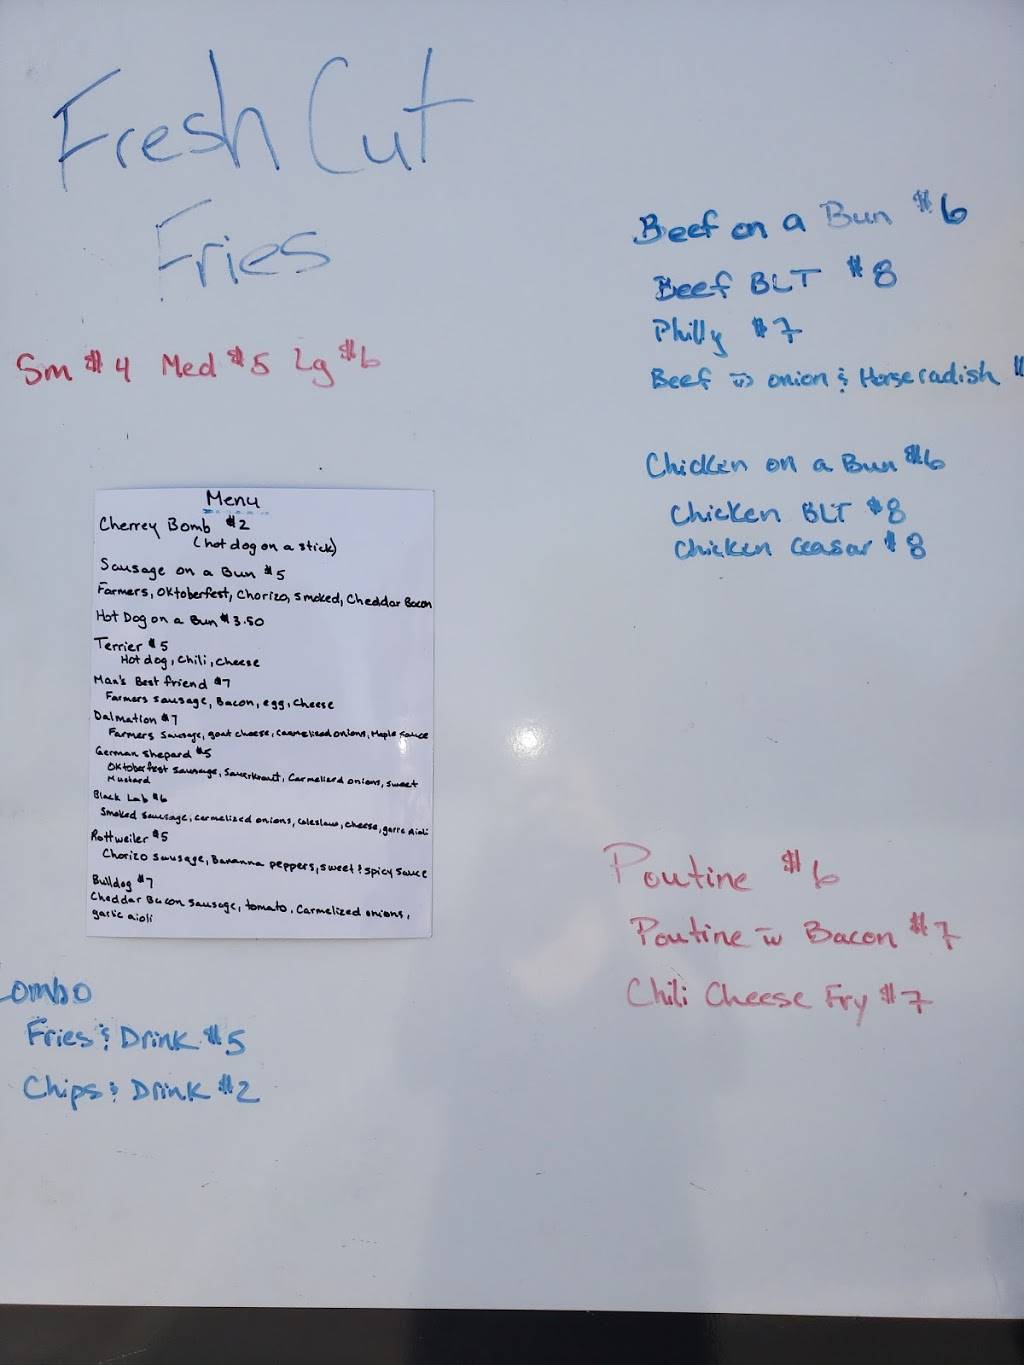 Fresh Cut
Fries
Sm $4 Med $5 Lg $6
Menu
Cherrey Bomb $2
(hot dog on a stick)
Sausage on a Bun $5
Farmers, Oktoberfest, Chorizo, Smoked, Cheddar Bacon
Hot Dog on a Bun $3.50
Terrier $5
Hot dog, Chili, Cheese
Man's Best friend $7
Farmers Sausage, Bacon, egg, Cheese
Dalmation $7
Farmers Sausage, goat cheese, Carmelized onions, Maple Sauce
German Shepard $5
Oktoberfest Sausage, Sauerkraut, Carmelized onions, sweet
Mustard
Black Lab $6
Smoked Sausage, Carmelized onions, Coleslaw, Cheese, garlic Aioli
Rottweiler $5
Chorizo Sausage, Bananna peppers, sweet & spicy sauce
Bulldog $7
Cheddar Bacon Sausage, tomato, Carmelized onions,
garlic aioli
Combo
Fries & Drink $5
Chips & Drink $2
Beef on a Bun $6
Beef BLT $8
Philly $7
Beef w onion & Horseradish $
Chicken on a Bun $6
Chicken BLT $8
Chicken Ceasar $8
Poutine $6
Poutine w Bacon $7
Chili Cheese Fry $7